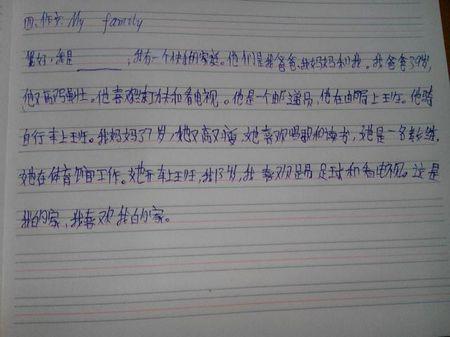 四、作文: My family
你好,我是______,我有一个快乐的家庭。他们是我爸爸、我妈妈和我。我爸爸39岁,
他又高又壮。他喜欢打球和看电视。他是一个邮递员,他在邮局上班。他骑
自行车上班。我妈妈37岁,她又高又瘦,她喜欢唱歌和读书,她是一名教练,
她在体育馆工作。她开车上班,我13岁,我喜欢踢足球和看电视。这是
我的家,我喜欢我的家。